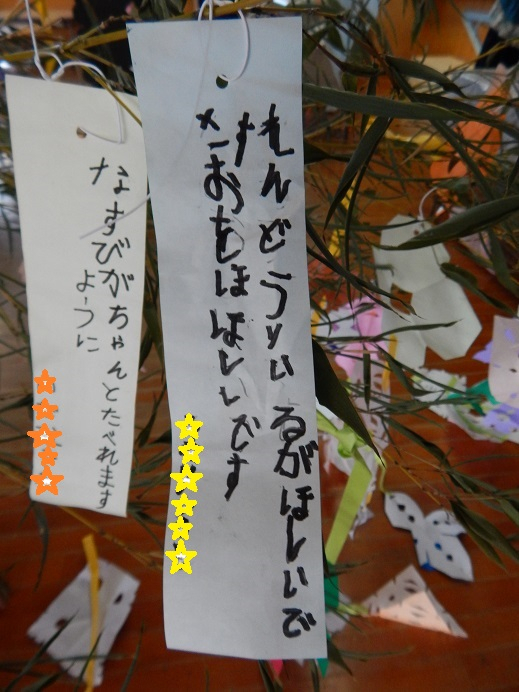 れんどうりいるがほしいで
す
おもほほしいです
なすびがちゃんとたべれます
ように